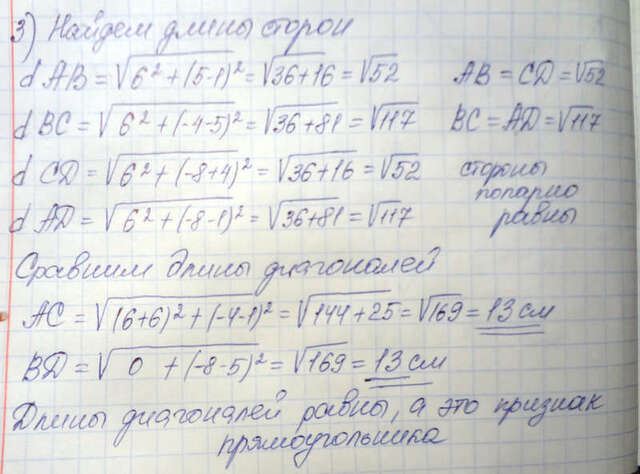 3) Найдем длины сторон
d AB = √6² + (5-1)² = √36+16 = √52 AB = CD = √52
d BC = √6² + (-4-5)² = √36+81 = √117 BC = AD = √117
d CD = √6² + (-8+4)² = √36+16 = √52 стороны
попарно
d AD = √6² + (-8-1)² = √36+81 = √117 равны
Сравним длины диагоналей
AC = √(6+6)² + (-4-1)² = √144+25 = √169 = 13 см
BD = √0 + (-8-5)² = √169 = 13 см
Длины диагоналей равны, а это признак
прямоугольника